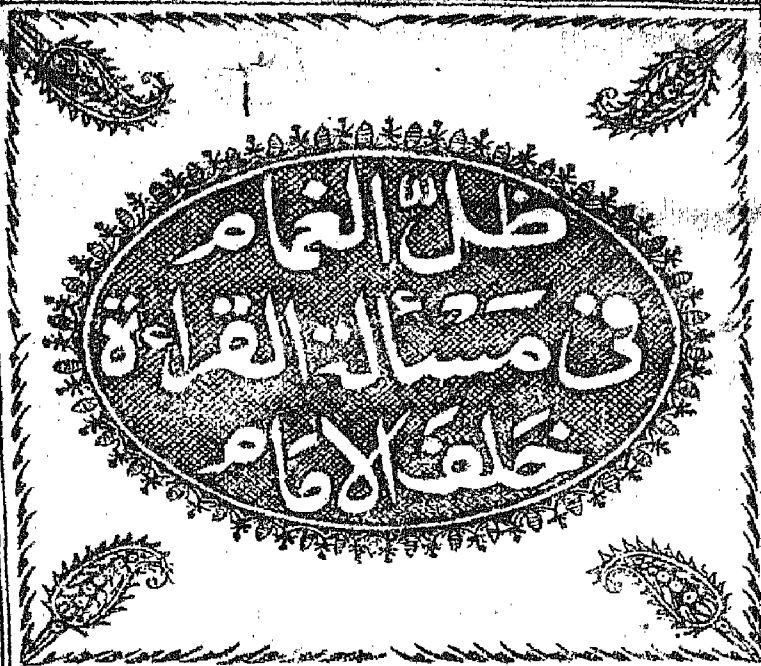 ظلّ الغمام
فی مَسْألة القراءة
خَلفَ الامَام